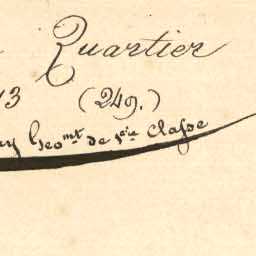 Quartier
13 (249.)
Géo.mt de 1ère Classe